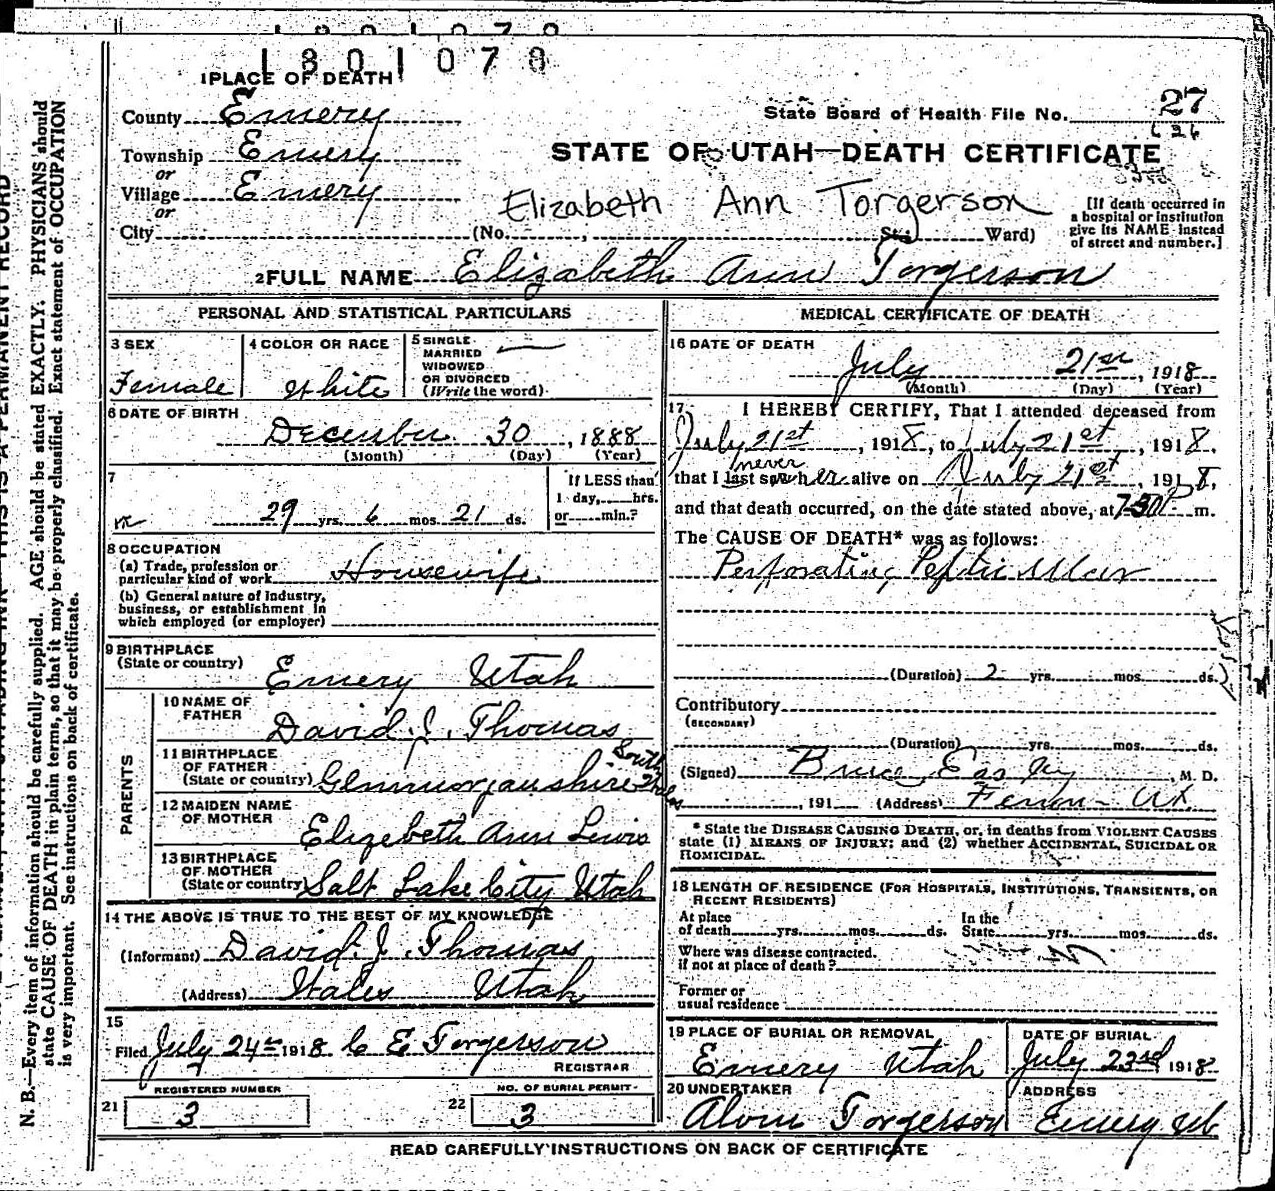 1801078
1 PLACE OF DEATH
County Emery
State Board of Health File No. 27
626
Township Emery
or
STATE OF UTAH—DEATH CERTIFICATE
Village Emery
or
Elizabeth Ann Torgerson
[If death occurred in
a hospital or institution
give its NAME instead
of street and number.]
City (No. , St.; Ward)
2 FULL NAME Elizabeth Ann Torgerson
PERSONAL AND STATISTICAL PARTICULARS
3 SEX
Female
4 COLOR OR RACE
White
5 SINGLE
MARRIED
WIDOWED
OR DIVORCED
(Write the word)
6 DATE OF BIRTH
December 30, 1888
(Month) (Day) (Year)
7
29 yrs. 6 mos. 21 ds.
If LESS than
1 day, hrs.
or min.?
8 OCCUPATION
(a) Trade, profession or
particular kind of work Housewife
(b) General nature of industry,
business, or establishment in
which employed (or employer)
9 BIRTHPLACE
(State or country)
Emery Utah
PARENTS
10 NAME OF
FATHER
David J. Thomas
11 BIRTHPLACE
OF FATHER
(State or country) Glenmorganshire South Wales
12 MAIDEN NAME
OF MOTHER
Elizebeth Ann Lewis
13 BIRTHPLACE
OF MOTHER
(State or country) Salt Lake City Utah
14 THE ABOVE IS TRUE TO THE BEST OF MY KNOWLEDGE
(Informant) David J. Thomas
(Address) Utah
15
Filed July 24th 1918 C E Torgerson
REGISTRAR
REGISTERED NUMBER
21 3
NO. OF BURIAL PERMIT
22 3
MEDICAL CERTIFICATE OF DEATH
16 DATE OF DEATH
July 21st, 1918
(Month) (Day) (Year)
17 I HEREBY CERTIFY, That I attended deceased from
July 21st, 1918, to July 21st, 1918,
never
that I last saw her alive on July 21st, 1918,
and that death occurred, on the date stated above, at 7-30 P m.
The CAUSE OF DEATH* was as follows:
Perforating Peptic Ulcer
(Duration) 2 yrs. mos. ds.
Contributory
(SECONDARY)
(Duration) yrs. mos. ds.
(Signed) Bruce Easley, M. D.
, 191 (Address) Ferron - Ut
* State the DISEASE CAUSING DEATH, or, in deaths from VIOLENT CAUSES
state (1) MEANS OF INJURY; and (2) whether ACCIDENTAL, SUICIDAL OR
HOMICIDAL.
18 LENGTH OF RESIDENCE (FOR HOSPITALS, INSTITUTIONS, TRANSIENTS, OR
RECENT RESIDENTS)
At place
of death yrs. mos. ds.
In the
State yrs. mos. ds.
Where was disease contracted.
if not at place of death?
Former or
usual residence
19 PLACE OF BURIAL OR REMOVAL
Emery Utah
DATE OF BURIAL
July 23rd 1918
20 UNDERTAKER
Torgerson
ADDRESS
Emery Ut
READ CAREFULLY INSTRUCTIONS ON BACK OF CERTIFICATE
N. B.—Every item of information should be carefully supplied. AGE should be stated EXACTLY. PHYSICIANS should
state CAUSE OF DEATH in plain terms, so that it may be properly classified. Exact statement of OCCUPATION
is very important. See instructions on back of certificate.